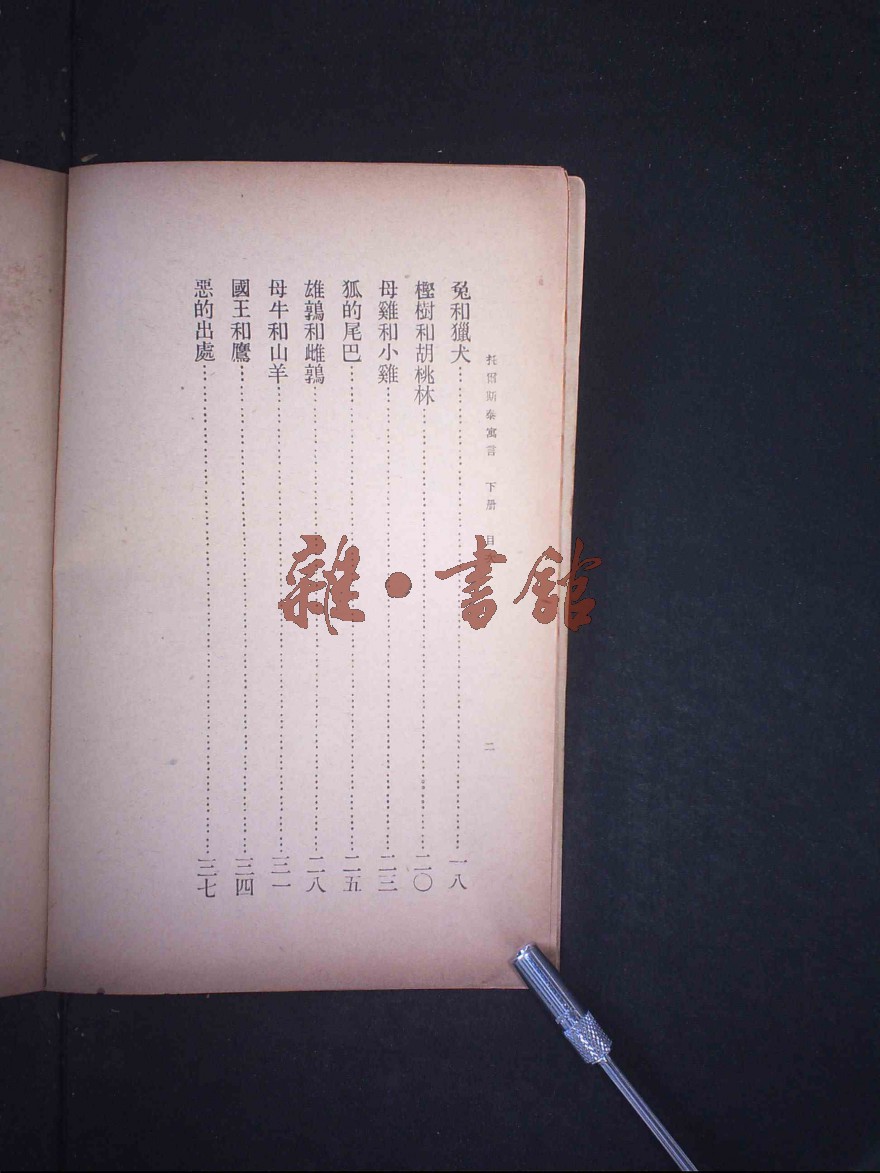 托爾斯泰寓言 下册 目 二
兔和獵犬……一八
樫樹和胡桃林……二〇
母雞和小雞……二三
狐的尾巴……二五
雄鶉和雌鶉……二八
母牛和山羊……三一
國王和鷹……三四
惡的出處……三七
雜·書館